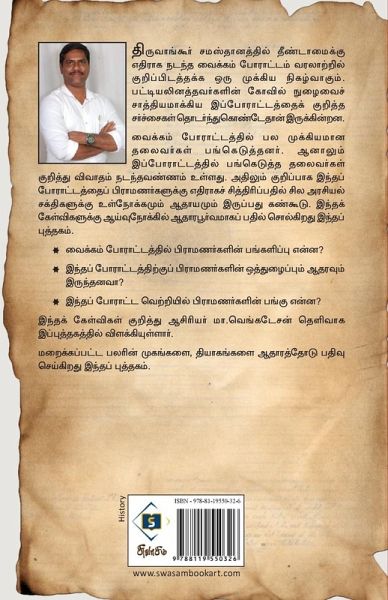 திருவாங்கூர் சமஸ்தானத்தில் தீண்டாமைக்கு
எதிராக நடந்த வைக்கம் போராட்டம் வரலாற்றில்
குறிப்பிடத்தக்க ஒரு முக்கிய நிகழ்வாகும்.
பட்டியலினத்தவர்களின் கோவில் நுழைவைச்
சாத்தியமாக்கிய இப்போராட்டத்தைக் குறித்த
சர்ச்சைகள் தொடர்ந்துகொண்டேதான் இருக்கின்றன.
வைக்கம் போராட்டத்தில் பல முக்கியமான
தலைவர்கள் பங்கெடுத்தனர். ஆனாலும்
இப்போராட்டத்தில் பங்கெடுத்த தலைவர்கள்
குறித்து விவாதம் நடந்தவண்ணம் உள்ளது. அதிலும் குறிப்பாக இந்தப்
போராட்டத்தைப் பிராமணர்களுக்கு எதிராகச் சித்திரிப்பதில் சில அரசியல்
சக்திகளுக்கு உள்நோக்கமும் ஆதாயமும் இருப்பது கண்கூடு. இந்தக்
கேள்விகளுக்கு ஆய்வுநோக்கில் ஆதாரபூர்வமாகப் பதில் சொல்கிறது இந்தப்
புத்தகம்.
✸ வைக்கம் போராட்டத்தில் பிராமணர்களின் பங்களிப்பு என்ன?
✸ இந்தப் போராட்டத்திற்குப் பிராமணர்களின் ஒத்துழைப்பும் ஆதரவும்
இருந்தனவா?
✸ இந்தப் போராட்ட வெற்றியில் பிராமணர்களின் பங்கு என்ன?
இந்தக் கேள்விகள் குறித்து ஆசிரியர் மா.வெங்கடேசன் தெளிவாக
இப்புத்தகத்தில் விளக்கியுள்ளார்.
மறைக்கப்பட்ட பலரின் முகங்களை, தியாகங்களை ஆதாரத்தோடு பதிவு
செய்கிறது இந்தப் புத்தகம்.
History
S
சுவாசம்
ISBN - 978-81-19550-32-6
9 788119 550326
www.swasambookart.com